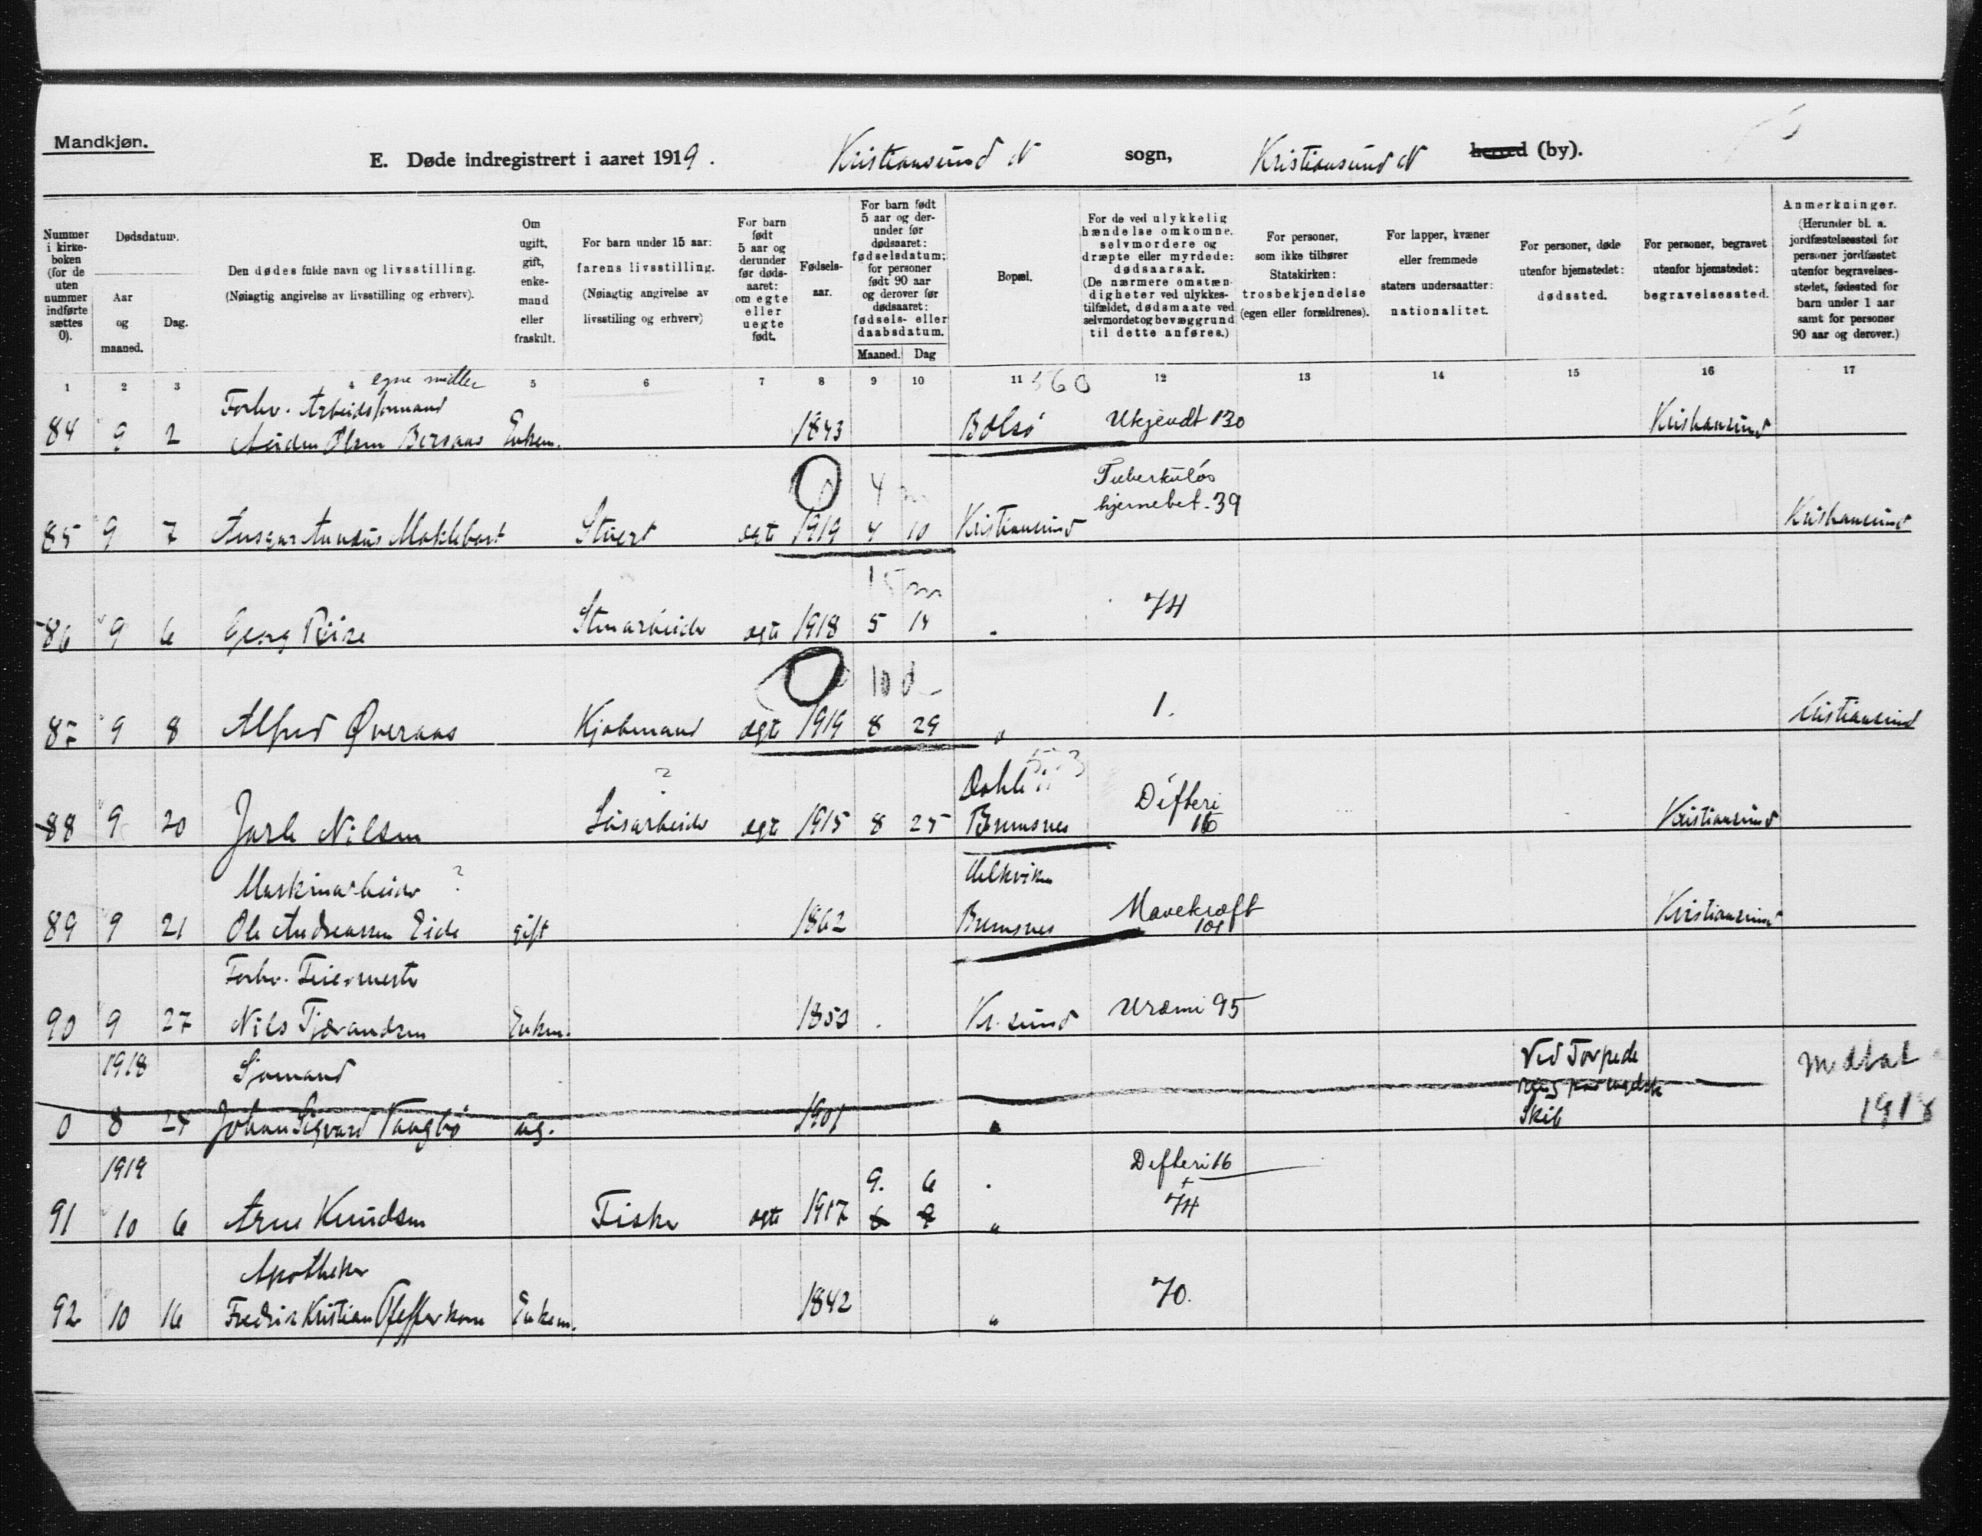 Mandkjøn.
E. Døde indregistrert i aaret 1919. Kristiansund N sogn, Kristiansund N herred (by).
Nummer i kirkeboken (for de uten nummer indførte sættes 0).
Dødsdatum.
Aar og maaned.
Dag.
Den dødes fulde navn og livsstilling.
(Nøiagtig angivelse av livsstilling og erhverv).
Om ugift, gift, enkemand eller fraskilt.
For barn under 15 aar: farens livsstilling.
(Nøiagtig angivelse av livsstiling og erhverv)
For barn født 5 aar og derunder før dødsaaret: om egte eller uegte født.
Fødselsaar.
For barn født 5 aar og derunder før dødsaaret: fødselsdatum; for personer født 90 aar og derover før dødsaaret: fødsels- eller daabsdatum.
Maaned.
Dag
Bopæl.
For de ved ulykkelig hændelse omkomne, selvmordere og dræpte eller myrdede: dødsaarsak.
(De nærmere omstændigheter ved ulykkestilfældet, dødsmaate ved selvmordet og bevæggrund til dette anføres.)
For personer, som ikke tilhører Statskirken: trosbekjendelse (egen eller forældrenes).
For lapper, kvæner eller fremmede staters undersaatter: nationalitet.
For personer, døde utenfor hjemstedet: dødssted.
For personer, begravet utenfor hjemstedet: begravelsessted.
Anmerkninger.
(Herunder bl. a. jordfæstelsessted for personer jordfæstet utenfor begravelsesstedet, fødested for barn under 1 aar samt for personer 90 aar og derover.)
1 2 3 4 5 6 7 8 9 10 11 12 13 14 15 16 17
egne midler
560
Forhv. Arbeidsformand
84 9 2 Olsen Enkem. 1843 Bolsø Ukjendt 130 Kristiansund
0 4 m Tuberkuløs
hjernebet. 39
85 9 7 Stuert egte 1919 4 10 Kristiansund Kristiansund
15 m
86 9 6 Georg Riise Stenarbeider egte 1918 5 74
0 10 d
87 9 8 Alfred Øveraas Kjøbmand egte 1919 8 29 " 1. Kristiansund
?
Dahle Difteri
88 9 20 Jarle Nilsen egte 1915 8 25 Bremsnes 16 Kristiansund
Maskinarbeider ?
89 9 21 Ole Andreassen Eide gift 1862 Bremsnes Mavekræft 101 Kristiansund
Forhv. Feiermester
90 9 27 Nils Tjærandsen Enkem. Kr. sund Uræmi 95
1918 Sjømand Ved Torpede
Medtat
0 8 Johan Sigvard ug. 1901 " Skib 1918
1919 9. 6 " Difteri 16
+
91 10 6 Arne Knudsen Fisker egte 1917 6 9 " 74
Apotheker
92 10 16 Fredrik Kristian Pfefferkorn Enkem. 1842 " 70.